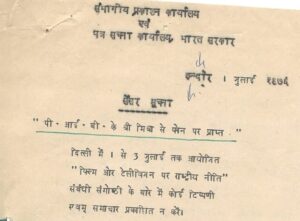 संभागीय प्रकाशन कार्यालय
एवं
पत्र सूचना कार्यालय, भारत सरकार
इन्दौर । जुलाई १९७६
सेंसर सूचना
" पी·आई·बी· के श्री मिश्रा से फोन पर प्राप्त ·"
दिल्ली में 1 से 3 जुलाई तक आयोजित
"फिल्म और टेलीविजन पर राष्ट्रीय नीति"
संबंधी संगोष्ठी के बारे में कोई टिप्पणी
एवम् समाचार प्रकाशित न करें।